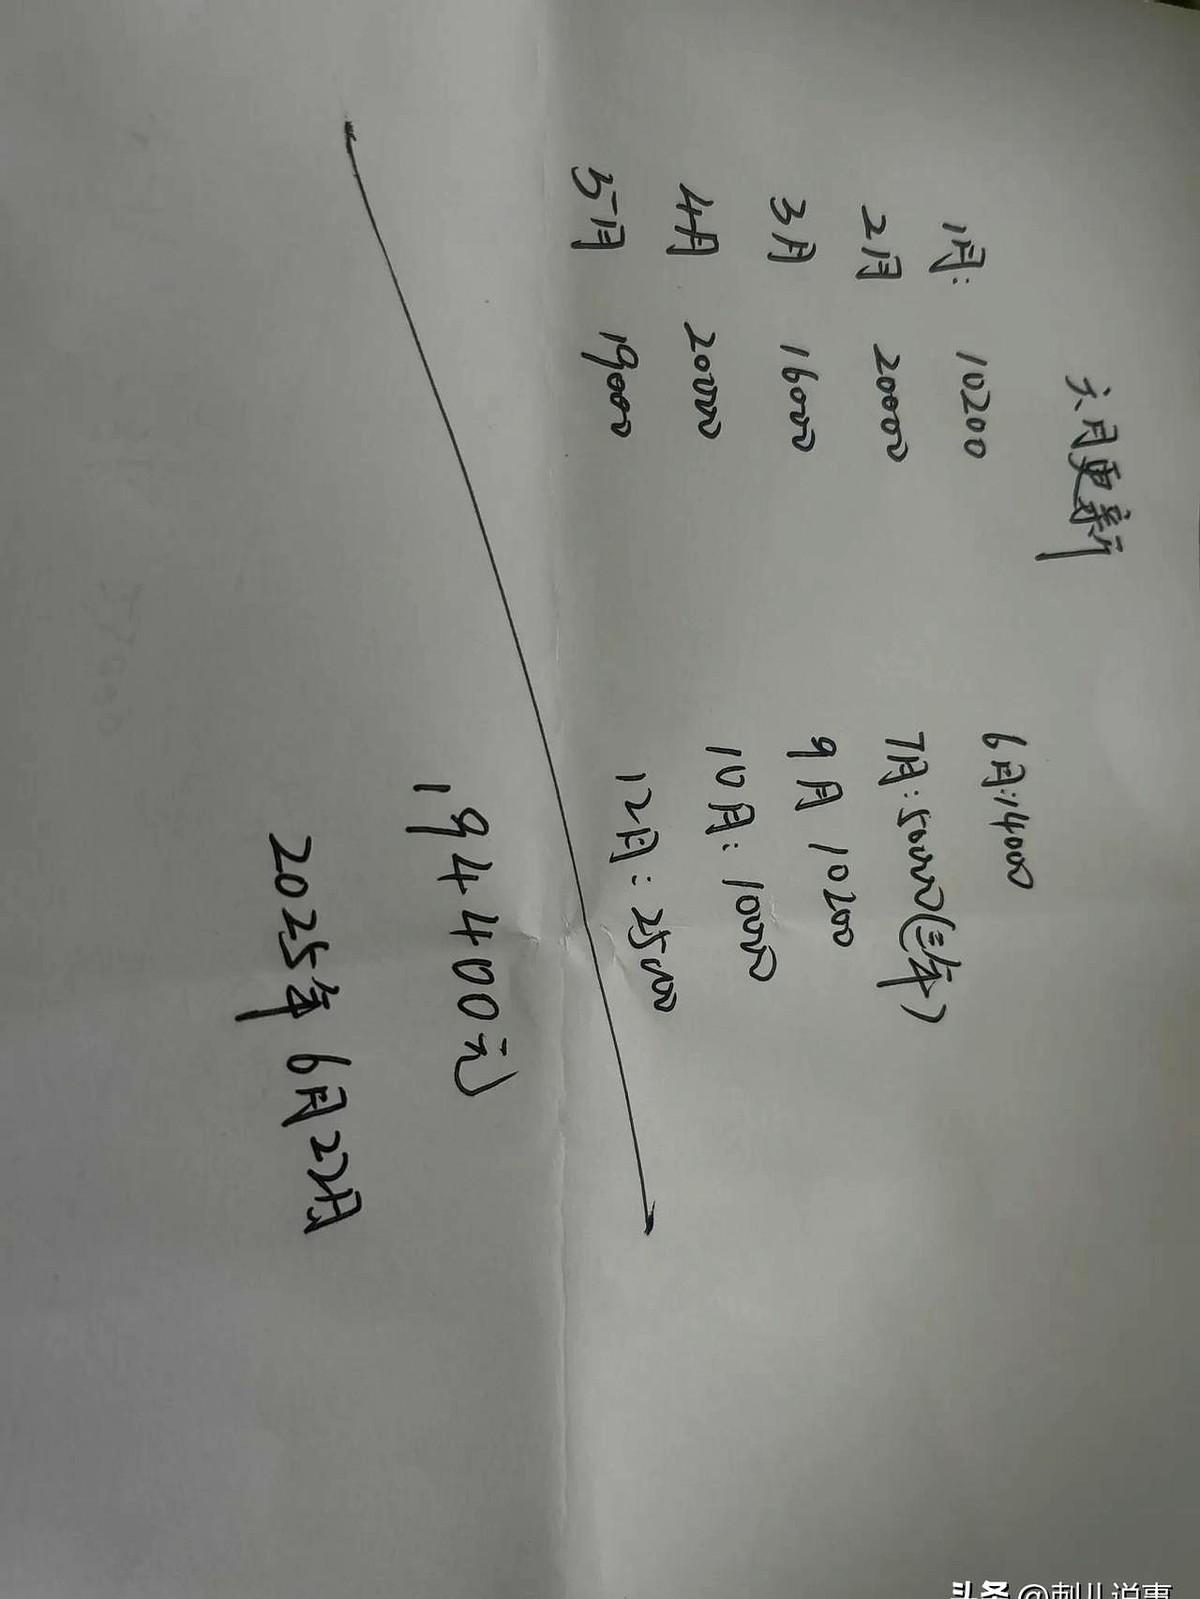 六月更新
1月: 10200
2月 20000
3月 16000
4月 20000
5月 19000
6月:14000
7月:50000(三年)
9月 10200
10月: 10000
12月: 25000
194400元
2025年6月22日
头条 @刺儿说事